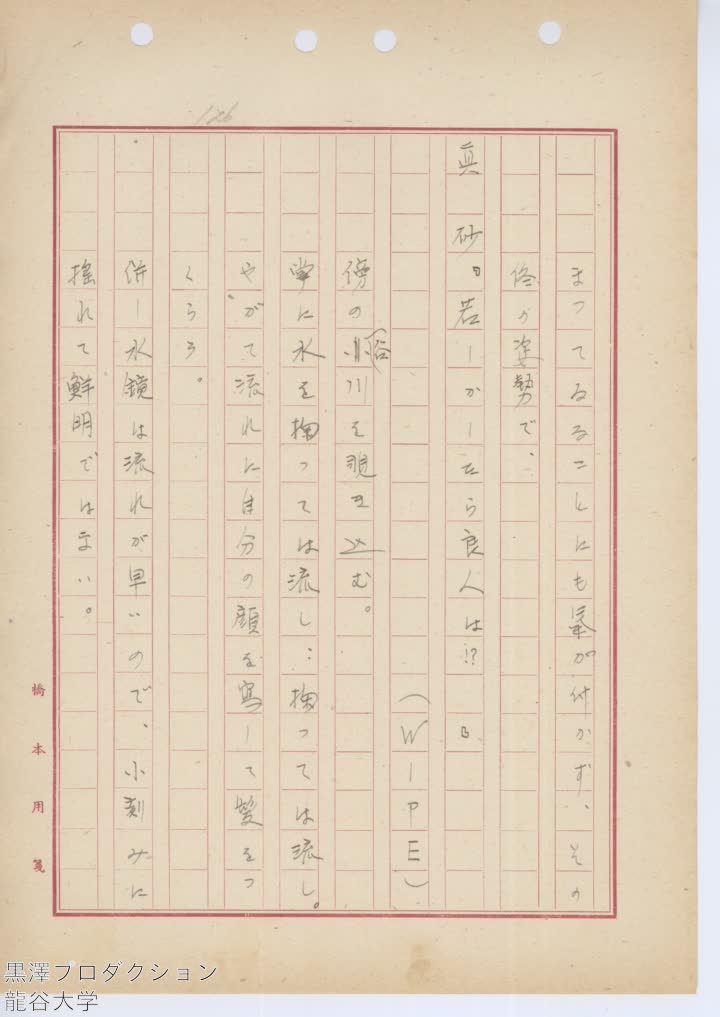 126
まつてゐることにも気が付かず、その
侭の姿勢で、
眞 砂「若しかしたら良人は!?」
(WIPE)
傍の谷川を覗き込む。
掌に水を掬つては流し：掬つては流し。
やがて流れに自分の顔を寫して髪をつ
くらう。
併し水鏡は流れが早いので、小刻みに
揺れて鮮明ではない。
橋本用箋
黒澤プロダクション
龍谷大学